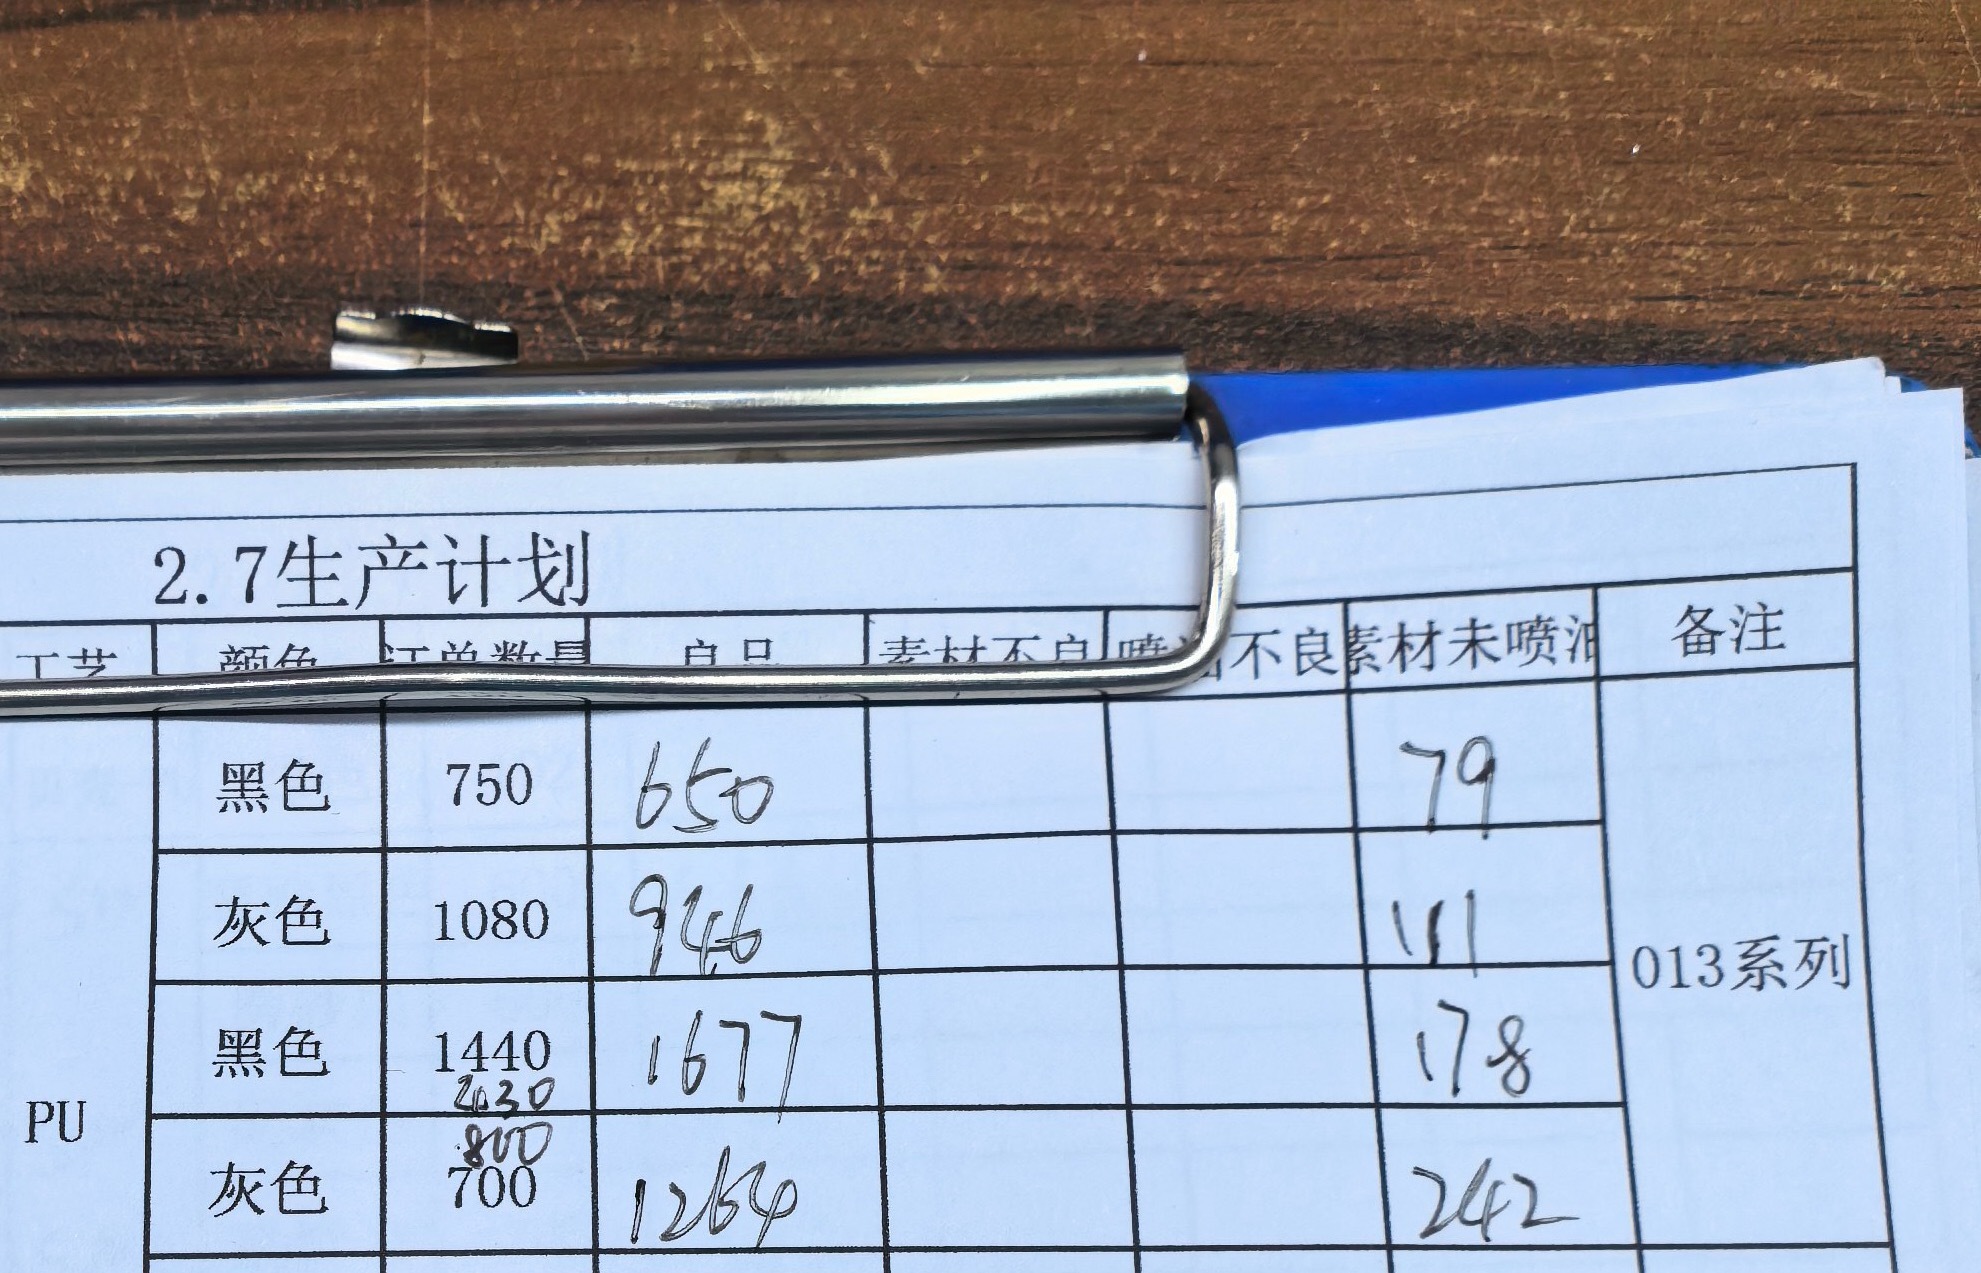 2.7生产计划
工艺 颜色 订单数量 良品 素材不良 喷油不良 素材未喷油 备注
黑色 750 650 79
灰色 1080 946 111
013系列
黑色 1440 1677 178
2130
PU
800
灰色 700 1264 242